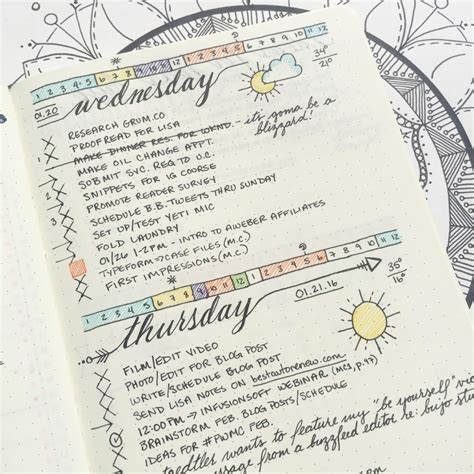 1 2 3 4 5 6 7 8 9 10 11 12 1 2 3 4 5 6 7 8 9 10 11 12
01.20
wednesday
34°
21°
RESEARCH GRUM.CO
PROOFREAD FOR LISA
MAKE DINNER RES. FOR WKND. - it's gonna be a blizzard!
MAKE OIL CHANGE APPT.
SUBMIT SVC. REQ TO O.C.
SNIPPETS FOR IG COURSE
PROMOTE READER SURVEY
SCHEDULE B.B. TWEETS THRU SUNDAY
SET UP/TEST YETI MIC
FOLD LAUNDRY
01/26 1-2PM - INTRO TO AWEBER AFFILIATES
TYPEFORM → CASE FILES (M.C.)
FIRST IMPRESSIONS (M.C.)
1 2 3 4 5 6 7 8 9 10 11 12 1 2 3 4 5 6 7 8 9 10 11 12
01.21.16
thursday
35°
16°
FILM/EDIT VIDEO
PHOTO/EDIT FOR BLOG POST
WRITE/SCHEDULE BLOG POST
SEND LISA NOTES ON bestautorenew.com
12:00PM → INFUSIONSOFT WEBINAR (MCS, p.97)
BRAINSTORM FEB. BLOG POSTS/SCHEDULE
IDEAS FOR #PWMC FEB.
wants to feature my "be yourself" vid
message from a buzzfeed editor re: bujo